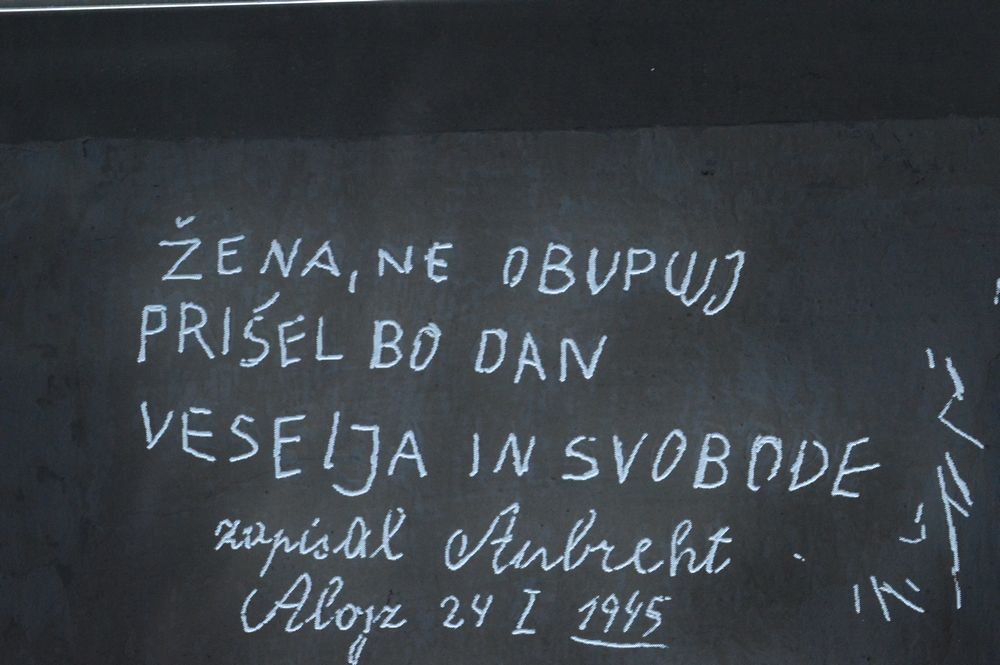 ŽENA, NE OBUPUJ
PRIŠEL BO DAN
VESELJA IN SVOBODE
zapisal Aubreht
Alojz 24 I 1945